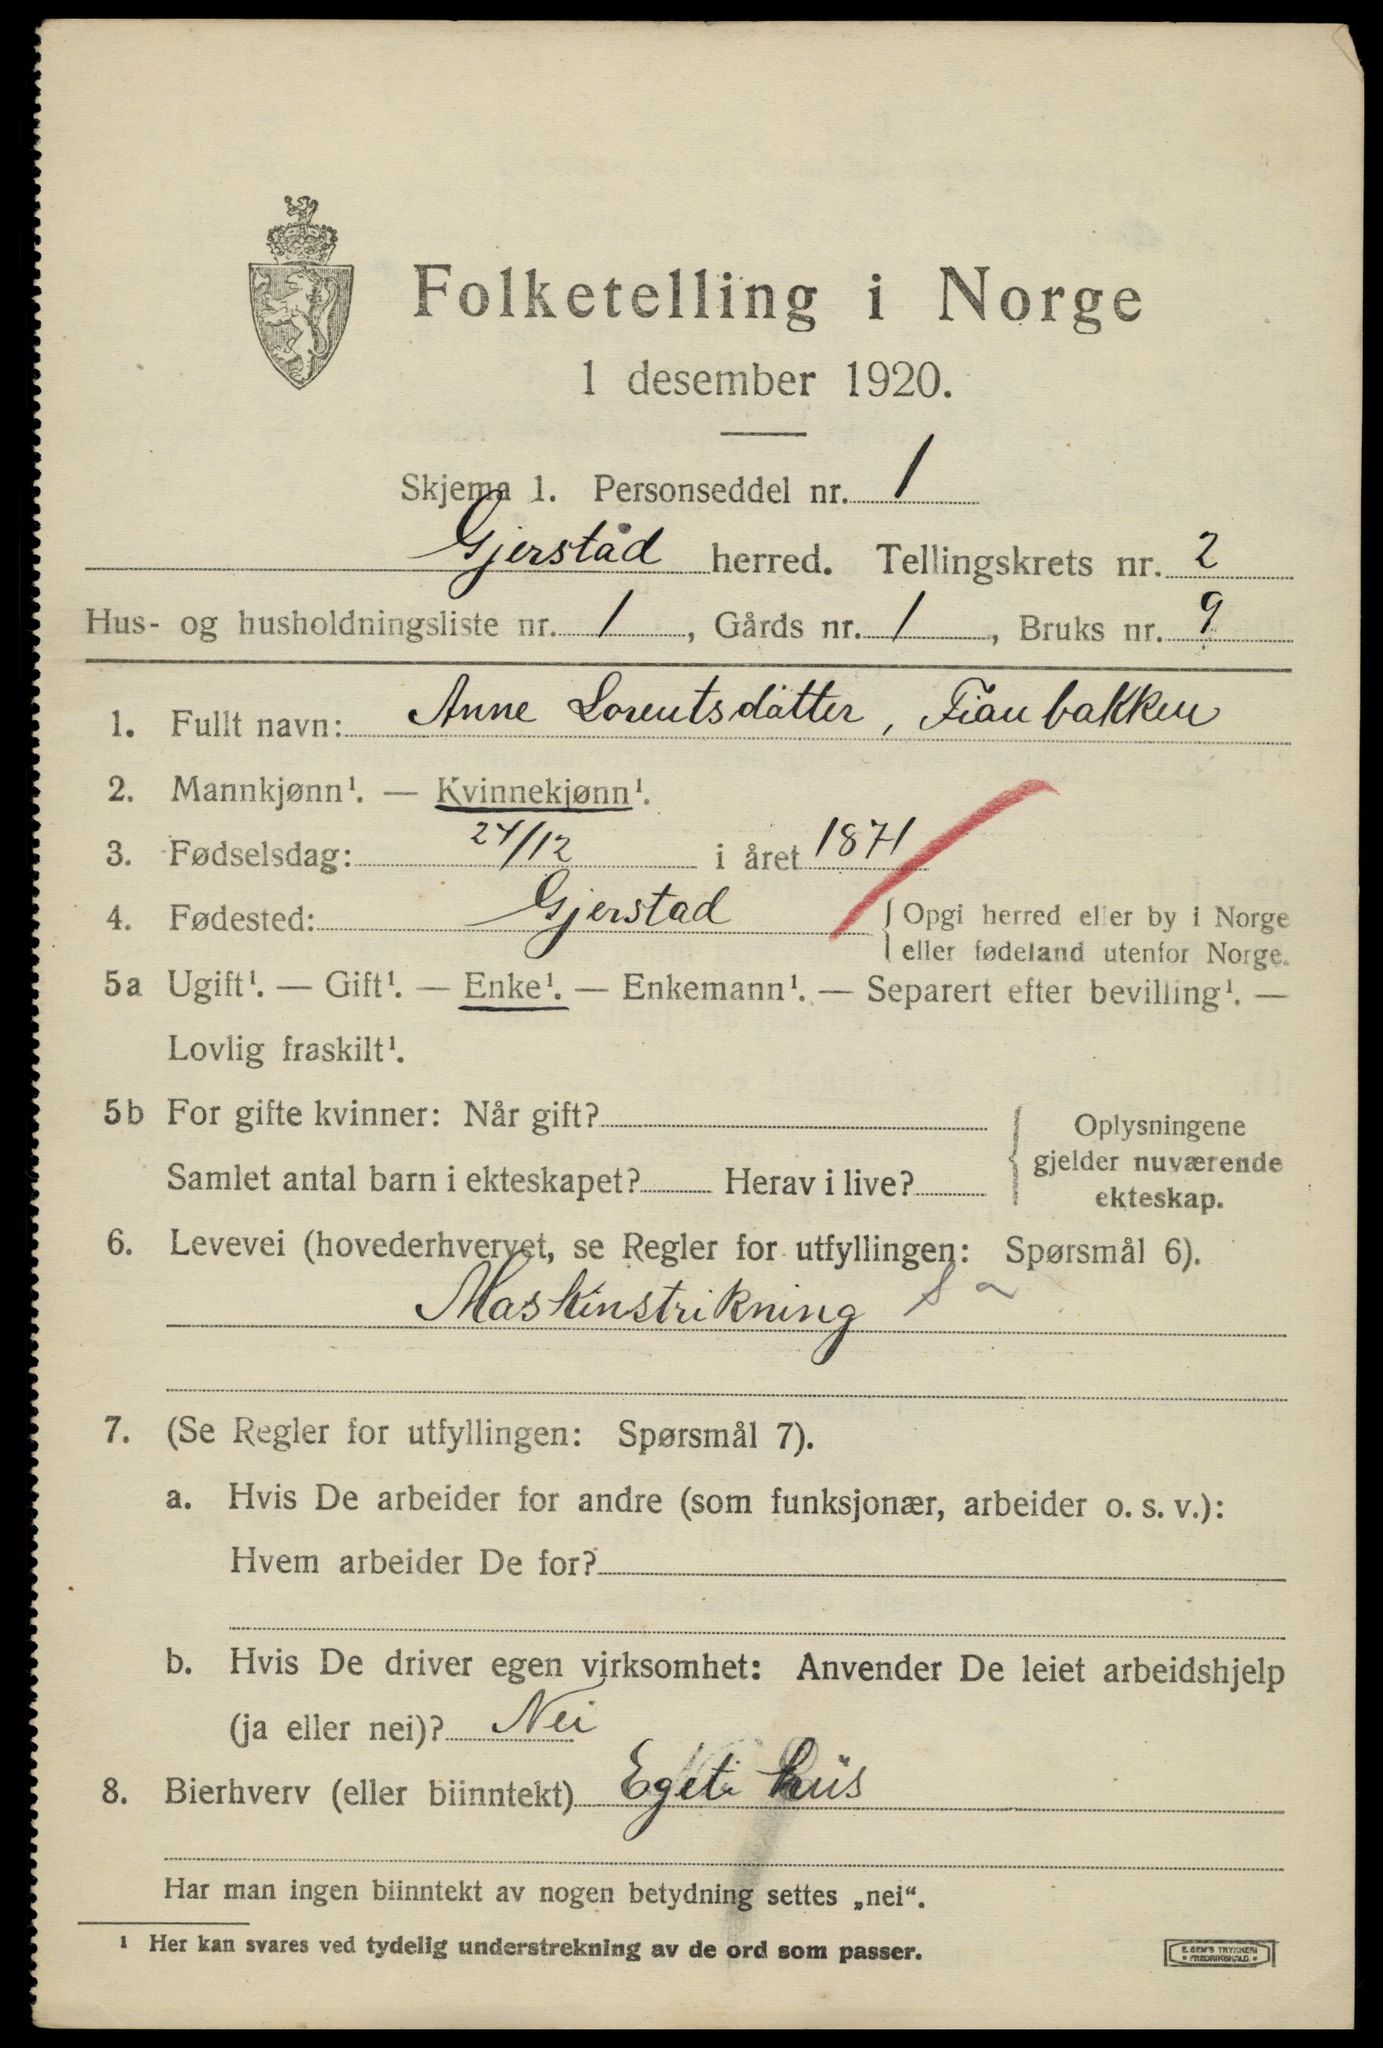 Folketelling i Norge
1 desember 1920.
Skjema 1. Personseddel nr. 1
Gjerstad herred. Tellingskrets nr. 2
Hus- og husholdningsliste nr. 1, Gårds nr. 1, Bruks nr. 9
1. Fullt navn: Anne Lorentsdatter, Fianbakken
2. Mannkjønn¹. — Kvinnekjønn¹.
3. Fødselsdag: 24/12 i året 1871
4. Fødested: Gjerstad { Opgi herred eller by i Norge
eller fødeland utenfor Norge.
5a Ugift¹. — Gift¹. — Enke¹. — Enkemann¹. — Separert efter bevilling¹. —
Lovlig fraskilt¹.
5b For gifte kvinner: Når gift?
Samlet antal barn i ekteskapet? Herav i live?
{ Oplysningene
gjelder nuværende
ekteskap.
6. Levevei (hovederhvervet, se Regler for utfyllingen: Spørsmål 6).
Maskinstrikning
7. (Se Regler for utfyllingen: Spørsmål 7).
a. Hvis De arbeider for andre (som funksjonær, arbeider o. s. v.):
Hvem arbeider De for?
b. Hvis De driver egen virksomhet: Anvender De leiet arbeidshjelp
(ja eller nei)? Nei
8. Bierhverv (eller biinntekt) Eget hus
Har man ingen biinntekt av nogen betydning settes „nei“.
¹ Her kan svares ved tydelig understrekning av de ord som passer.
E. SEM'S TRYKKERI
• FREDRIKSHALD •